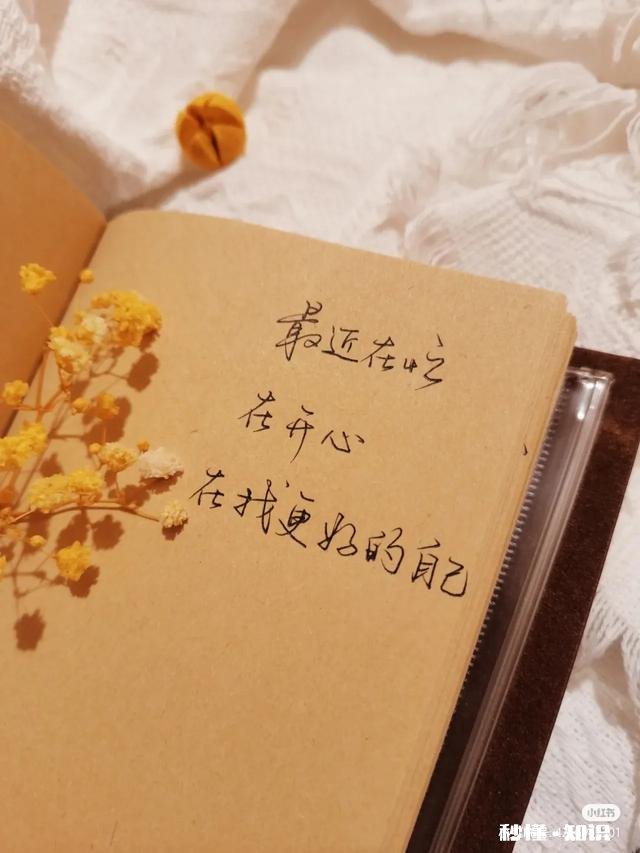 最近在忙
在开心
在找更好的自己
小红书
秒懂·知识